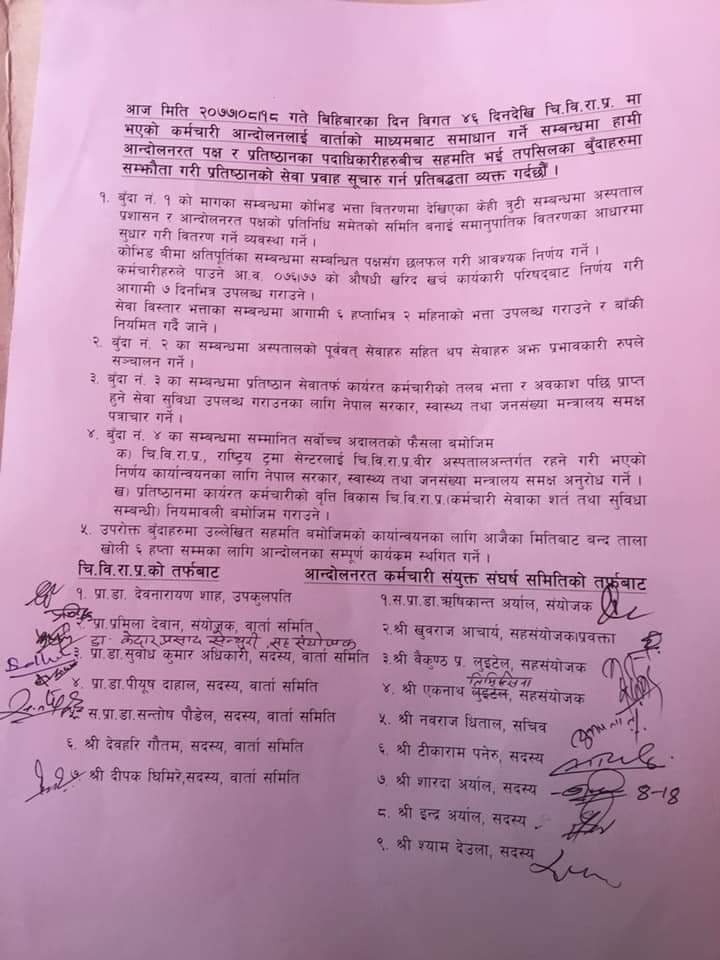 आज मिति २०७७।०८।१८ गते बिहिबारका दिन विगत ४६ दिनदेखि चि.वि.रा.प्र. मा
भएको कर्मचारी आन्दोलनलाई वार्ताको माध्यमबाट समाधान गर्ने सम्बन्धमा हामी
आन्दोलनरत पक्ष र प्रतिष्ठानका पदाधिकारीहरुबीच सहमति भई तपसिलका बुँदाहरुमा
सम्झौता गरी प्रतिष्ठानको सेवा प्रवाह सूचारु गर्न प्रतिबद्धता व्यक्त गर्दछौं ।
१. बुँदा नं. १ को मागका सम्बन्धमा कोभिड भत्ता वितरणमा देखिएका केही त्रुटी सम्बन्धमा अस्पताल
प्रशासन र आन्दोलनरत पक्षको प्रतिनिधि समेतको समिति बनाई समानुपातिक वितरणका आधारमा
सुधार गरी वितरण गर्ने व्यवस्था गर्ने ।
कोभिड बीमा क्षतिपूर्तिका सम्बन्धमा सम्बन्धित पक्षसंग छलफल गरी आवश्यक निर्णय गर्ने ।
कर्मचारीहरुले पाउने आ.व. ०७६।७७ को औषधी खरिद खर्च कार्यकारी परिषद्बाट निर्णय गरी
आगामी ७ दिनभित्र उपलब्ध गराउने ।
सेवा विस्तार भत्ताका सम्बन्धमा आगामी ६ हप्ताभित्र २ महिनाको भत्ता उपलब्ध गराउने र बाँकी
नियमित गर्दै जाने ।
२. बुँदा नं. २ का सम्बन्धमा अस्पतालको पूर्ववत् सेवाहरु सहित थप सेवाहरु अझ प्रभावकारी रुपले
सञ्चालन गर्ने ।
३. बुँदा नं. ३ का सम्बन्धमा प्रतिष्ठान सेवातर्फ कार्यरत कर्मचारीको तलब भत्ता र अवकाश पछि प्राप्त
हुने सेवा सुविधा उपलब्ध गराउनका लागि नेपाल सरकार, स्वास्थ्य तथा जनसंख्या मन्त्रालय समक्ष
पत्राचार गर्ने ।
४. बुँदा नं. ४ का सम्बन्धमा सम्मानित सर्वोच्च अदालतको फैसला बमोजिम
क) चि.वि.रा.प्र., राष्ट्रिय ट्रमा सेन्टरलाई चि.वि.रा.प्र.वीर अस्पतालअन्तर्गत रहने गरी भएको
निर्णय कार्यान्वयनका लागि नेपाल सरकार, स्वास्थ्य तथा जनसंख्या मन्त्रालय समक्ष अनुरोध गर्ने ।
ख) प्रतिष्ठानमा कार्यरत कर्मचारीको वृत्ति विकास चि.वि.रा.प्र.(कर्मचारी सेवाका शर्त तथा सुविधा
सम्बन्धी) नियमावली बमोजिम गराउने ।
५. उपरोक्त बुँदाहरुमा उल्लेखित सहमति बमोजिमको कार्यान्वयनका लागि आजैका मितिबाट बन्द ताला
खोली ६ हप्ता सम्मका लागि आन्दोलनका सम्पूर्ण कार्यक्रम स्थगित गर्ने ।
चि.वि.रा.प्र.को तर्फबाट
१. प्रा.डा. देवनारायण शाह, उपकुलपति
२. प्रा.प्रमिला देवान, संयोजक, वार्ता समिति
डा. केदार प्रसाद सेन्चुरी, सह संयोजक
३. प्रा.डा.सुवोध कुमार अधिकारी, सदस्य, वार्ता समिति
४. प्रा.डा.पीयूष दाहाल, सदस्य, वार्ता समिति
५. स.प्रा.डा.सन्तोष पौडेल, सदस्य, वार्ता समिति
६. श्री देवहरि गौतम, सदस्य, वार्ता समिति
७ श्री दीपक घिमिरे,सदस्य, वार्ता समिति
आन्दोलनरत कर्मचारी संयुक्त संघर्ष समितिको तर्फबाट
१.स.प्रा.डा.ऋषिकान्त अर्याल, संयोजक
२.श्री खुवराज आचार्य, सहसंयोजक।प्रवक्ता
३.श्री वैकुण्ठ प्र. लुइटेल, सहसंयोजक
४. श्री एकनाथ लुइटेल, सहसंयोजक
५. श्री नवराज धिताल, सचिव
६. श्री टीकाराम पनेरु, सदस्य
७. श्री शारदा अर्याल, सदस्य
8-18
८. श्री इन्द्र अर्याल, सदस्य
९. श्री श्याम देउला, सदस्य